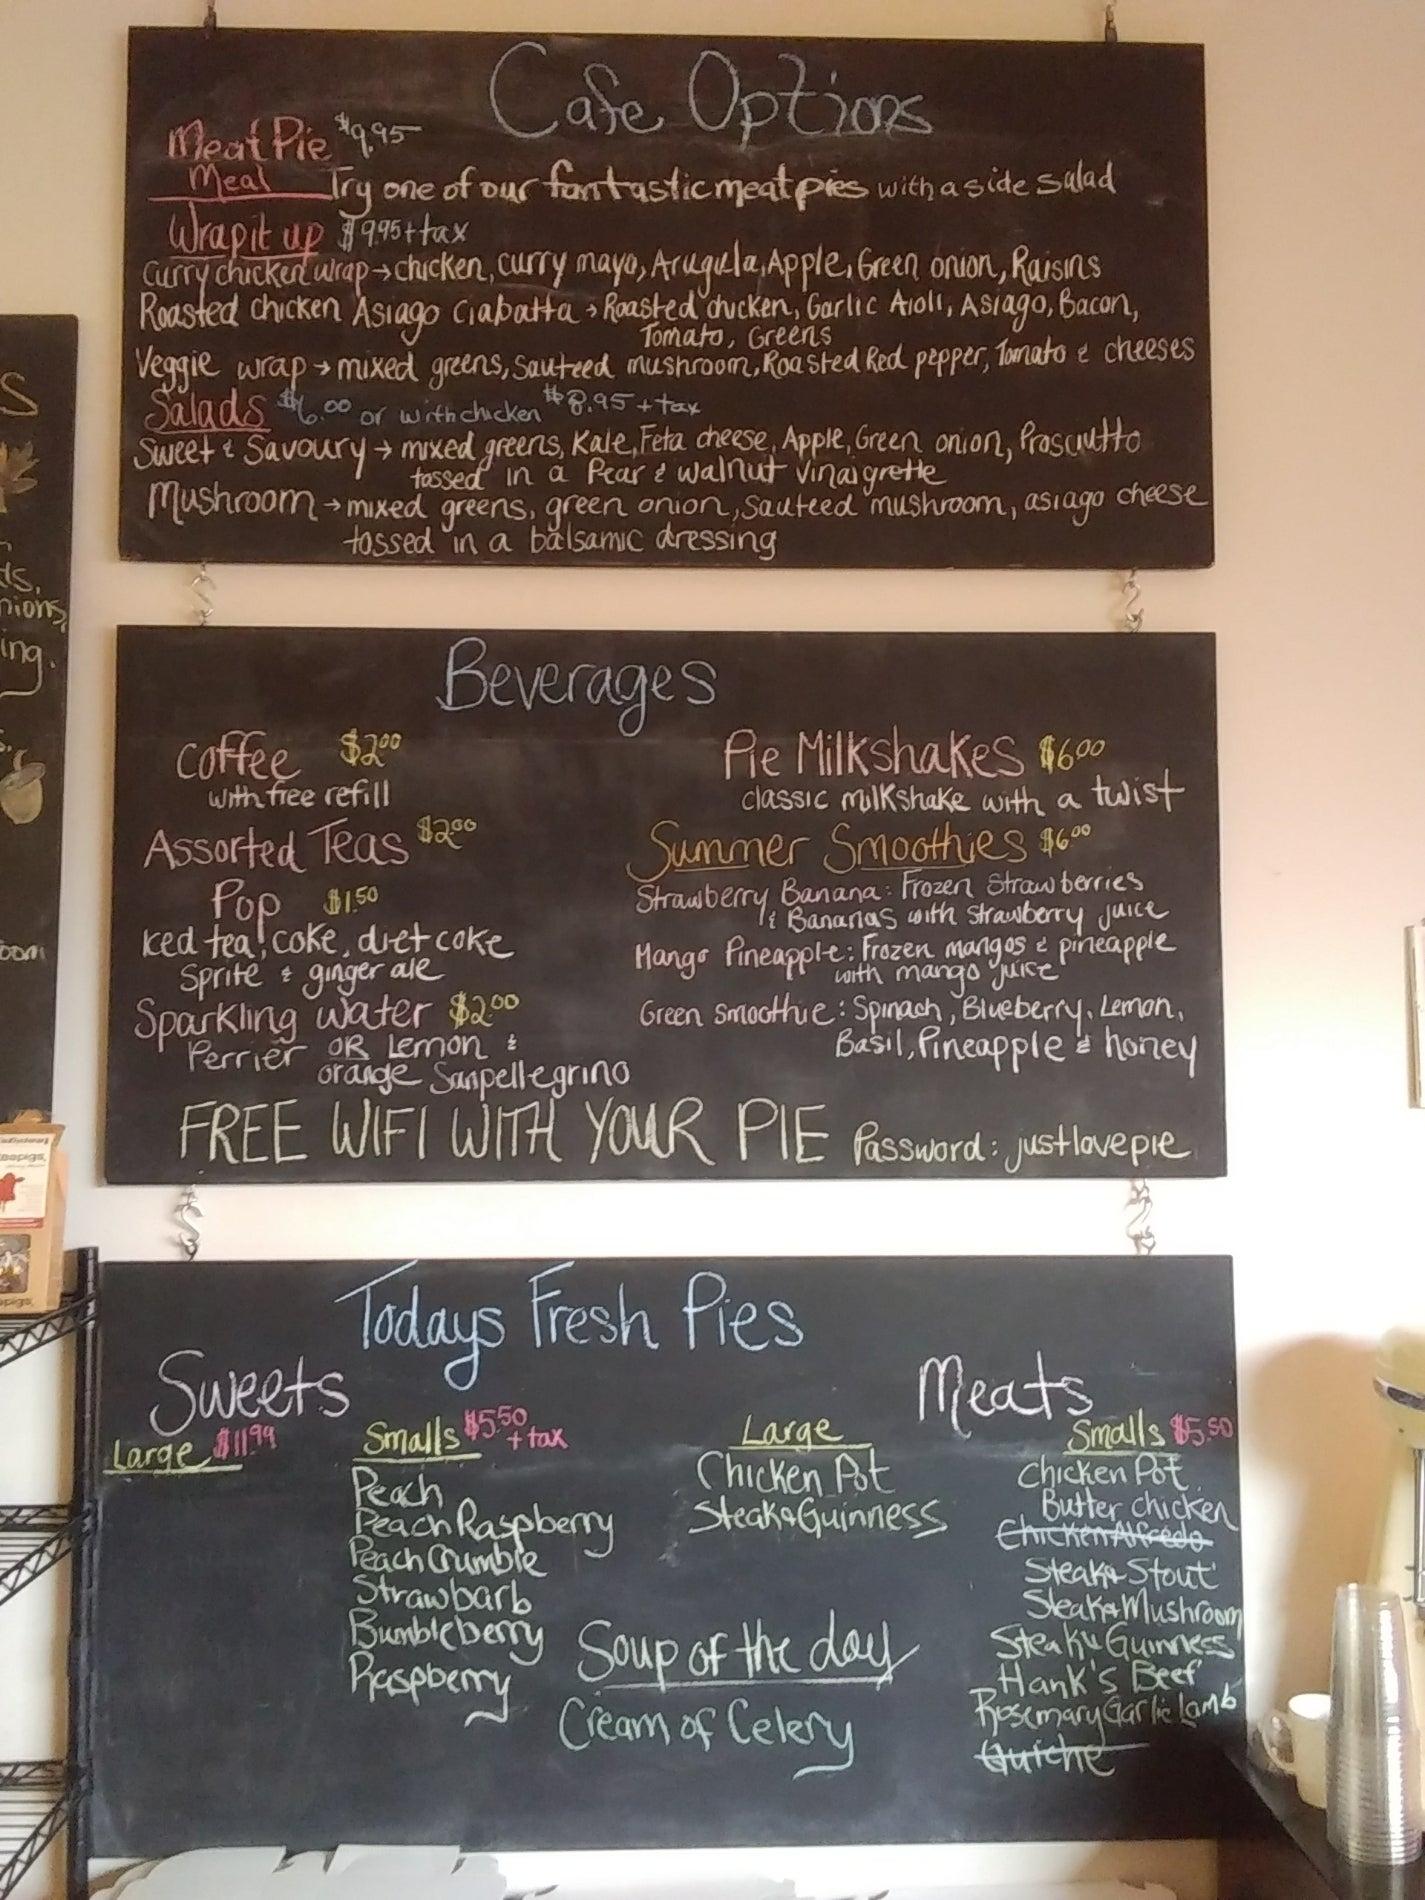 Cafe Options
Meat Pie $9.95
Meal Try one of our fantastic meat pies with a side salad
Wrap it up $9.95 + tax
Curry chicken wrap → chicken, curry mayo, Arugula, Apple, Green onion, Raisins
Roasted chicken Asiago Ciabatta → Roasted chicken, Garlic Aioli, Asiago, Bacon,
Tomato, Greens
Veggie wrap → mixed greens, Sauteed mushroom, Roasted Red pepper, Tomato & cheeses
Salads $6.00 or with chicken $8.95 + tax
Sweet & Savoury → mixed greens, Kale, Feta cheese, Apple, Green onion, Prosciutto
tossed in a Pear & walnut Vinaigrette
Mushroom → mixed greens, green onion, sauteed mushroom, asiago cheese
tossed in a balsamic dressing
Beverages
Coffee $2.00
with free refill
Assorted Teas $2.00
Pop $1.50
Iced tea, coke, diet coke
Sprite & ginger ale
Sparkling water $2.00
Perrier OR Lemon &
orange Sanpellegrino
Pie Milkshakes $6.00
classic milkshake with a twist
Summer Smoothies $6.00
Strawberry Banana: Frozen Strawberries
& Bananas with strawberry juice
Mango Pineapple: Frozen mangos & pineapple
with mango juice
Green smoothie: Spinach, Blueberry, Lemon,
Basil, Pineapple & honey
FREE WIFI WITH YOUR PIE Password: justlovepie
Todays Fresh Pies
Sweets
Large $11.99
Smalls $5.50 + tax
Peach
Peach Raspberry
Peach Crumble
Strawbarb
Bumbleberry
Raspberry
Meats
Large
Chicken Pot
Steak & Guinness
Smalls $5.50
Chicken Pot
Butter chicken
Chicken Alfredo
Steak & Stout
Steak & Mushroom
Steak & Guinness
Hank's Beef
Rosemary Garlic Lamb
Quiche
Soup of the day
Cream of Celery
nions,
ing.
oom